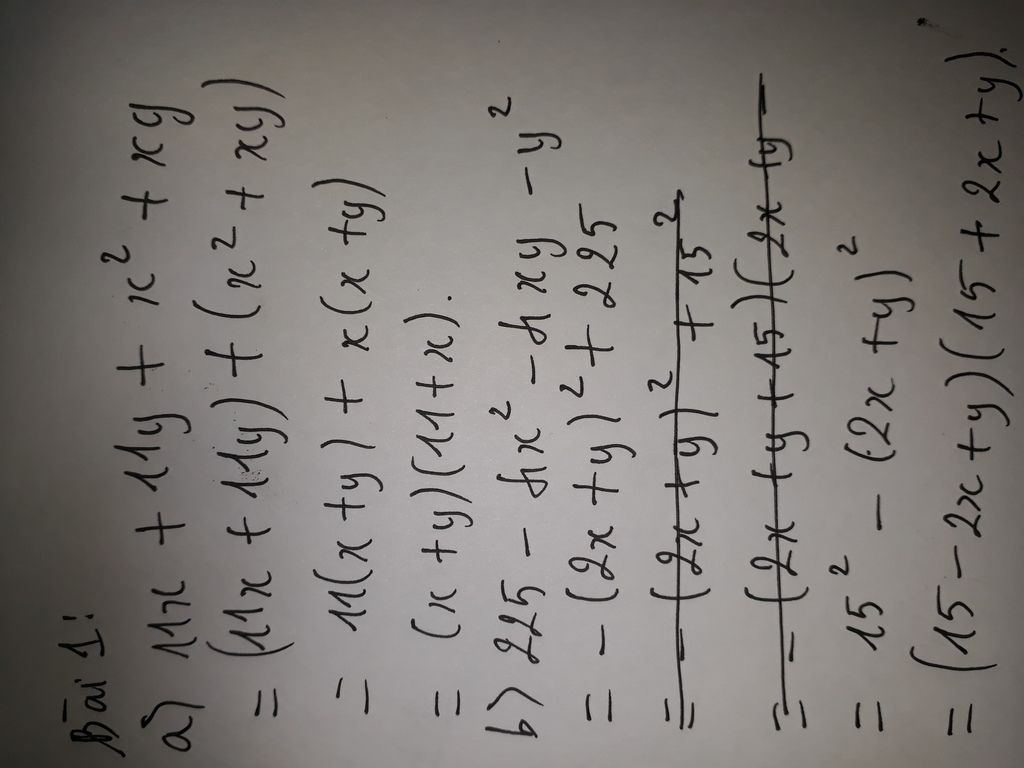 Bài 1:
a) 11x + 11y + x² + xy
= (11x + 11y) + (x² + xy)
= 11(x + y) + x(x + y)
= (x + y)(11 + x).
b) 225 - 4x² - 4xy - y²
= - (2x + y)² + 225
= - (2x + y)² + 15²
= - (2x + y + 15)(2x + y -
= 15² - (2x + y)²
= (15 - 2x + y)(15 + 2x + y).